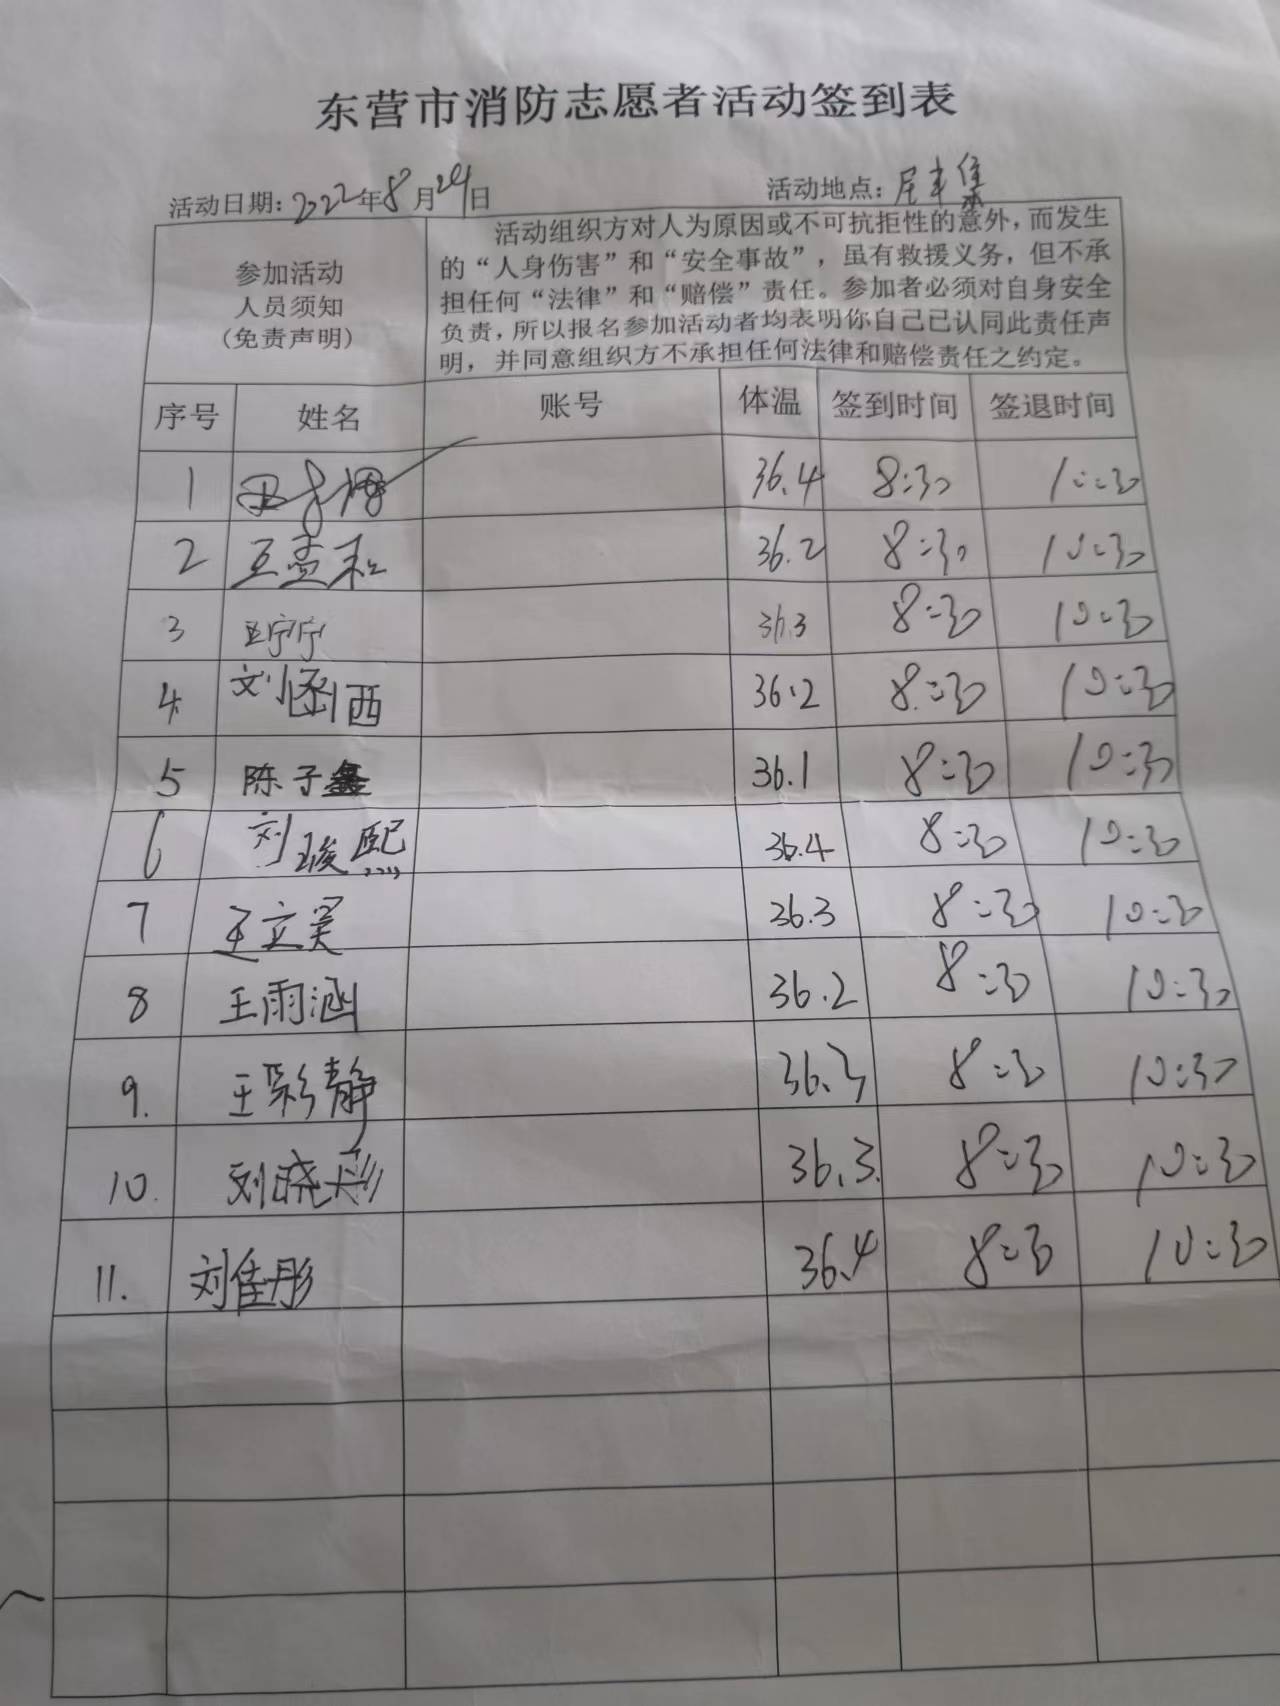 东营市消防志愿者活动签到表
活动日期：2022年8月24日 活动地点：
参加活动
人员须知
(免责声明)
活动组织方对人为原因或不可抗拒性的意外，而发生
的“人身伤害”和“安全事故”，虽有救援义务，但不承
担任何“法律”和“赔偿”责任。参加者必须对自身安全
负责，所以报名参加活动者均表明你自己已认同此责任声
明，并同意组织方不承担任何法律和赔偿责任之约定。
序号 姓名 账号 体温 签到时间 签退时间
1 36.4 8:30 10:30
2 36.2 8:30 10:30
3 王宁宁 36.3 8:30 10:30
4 刘涵西 36.2 8:30 10:30
5 陈子鑫 36.1 8:30 10:30
6 刘骏熙 36.4 8:30 10:30
7 王立昊 36.3 8:30 10:30
8 王雨涵 36.2 8:30 10:30
9. 王彩静 36.3 8:30 10:30
10. 刘晓彤 36.3. 8:30 10:30
11. 刘佳彤 36.4 8:30 10:30